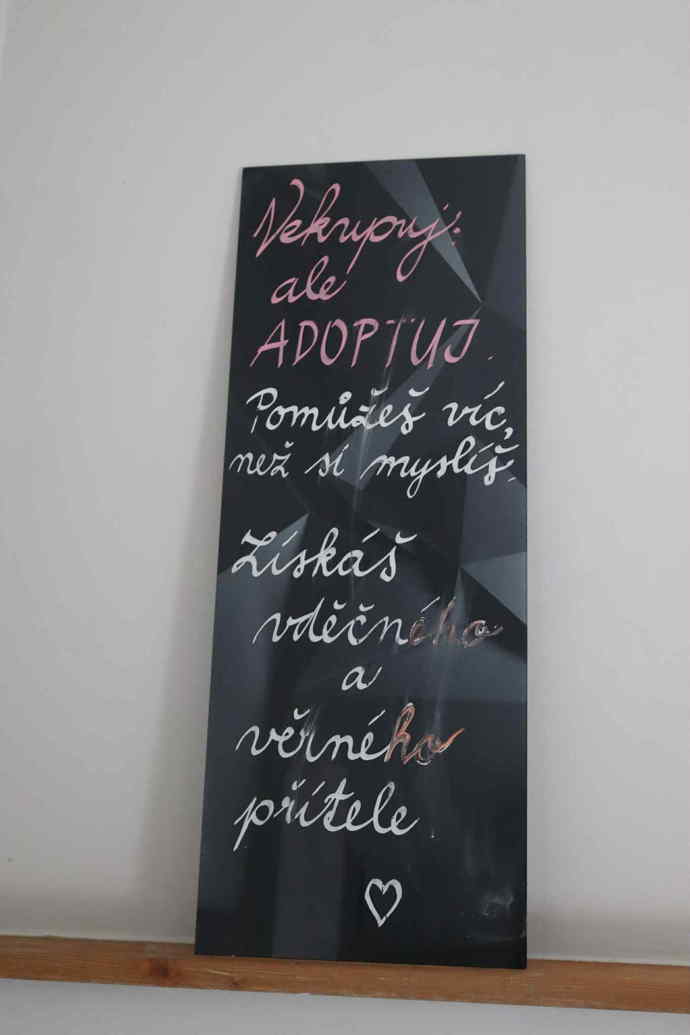 Nekupuj!
ale
ADOPTUJ.
Pomůžeš víc,
než si myslíš.
Získáš
vděčného
a
věrného
přítele